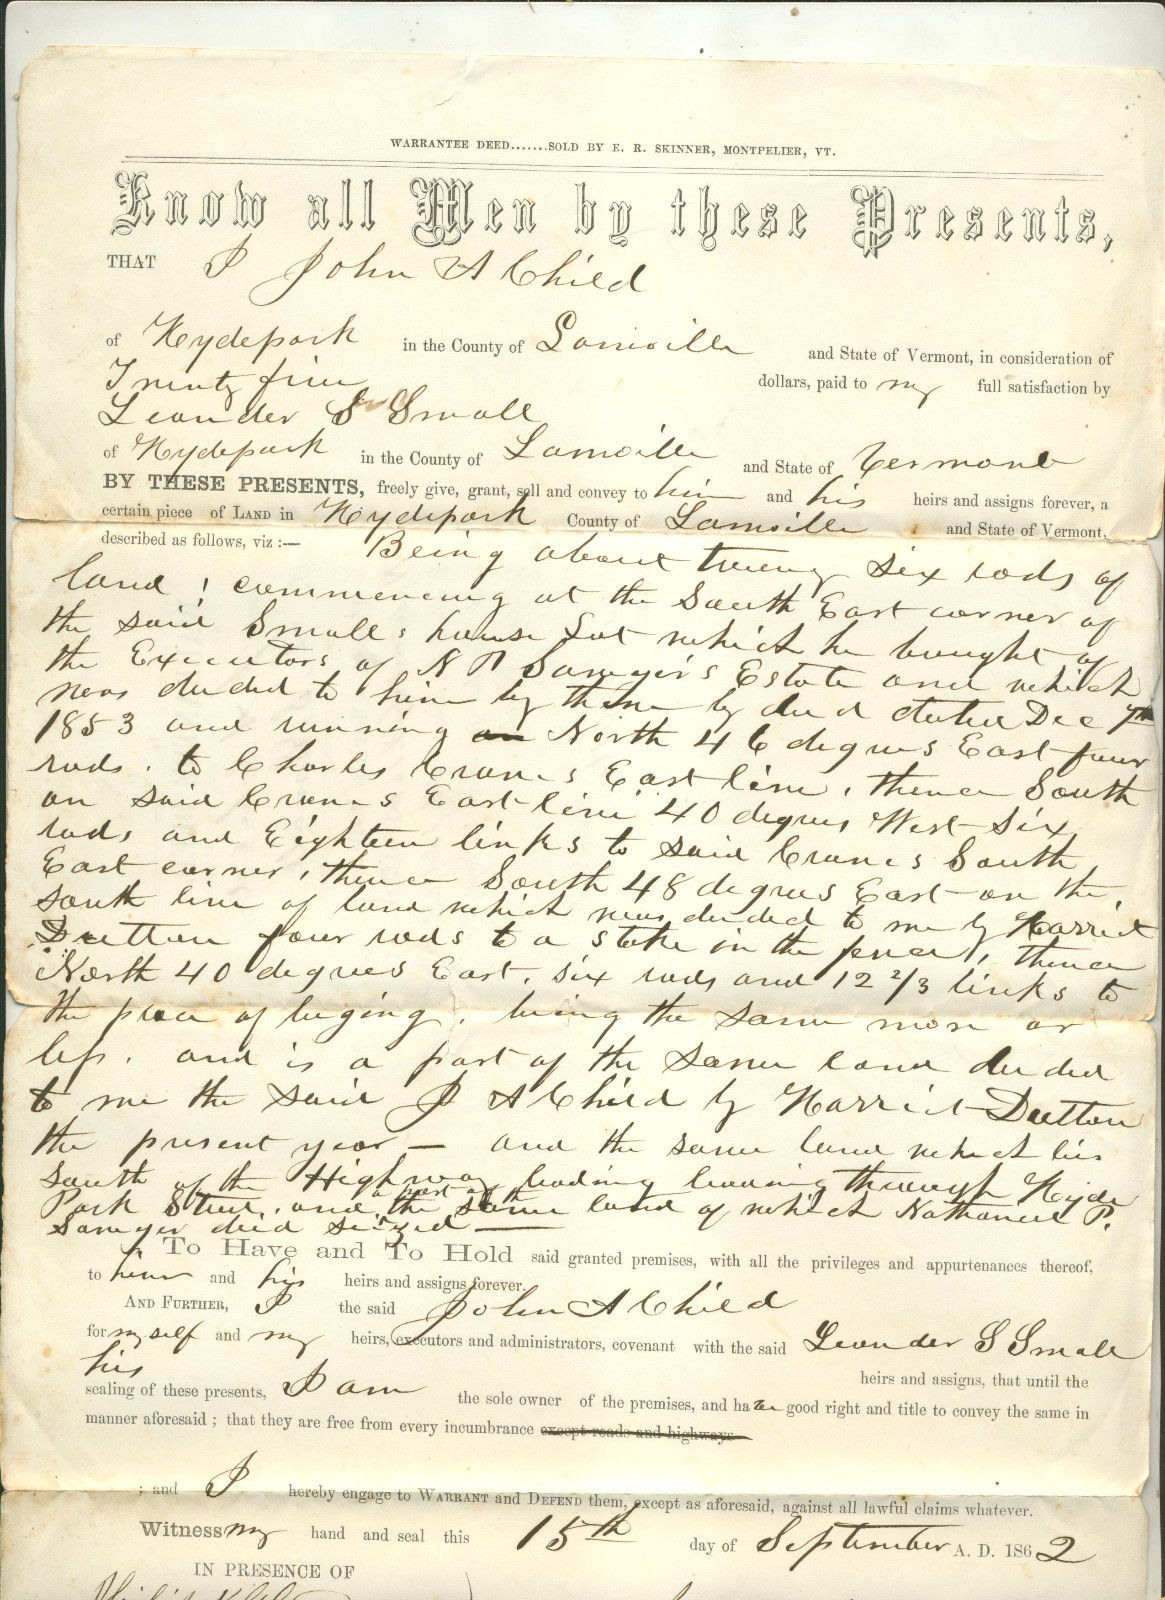 WARRANTEE DEED.......SOLD BY E. R. SKINNER, MONTPELIER, VT.
Know all Men by these Presents,
THAT I John A Child
of Hydepark in the County of Lamoille and State of Vermont, in consideration of
Twenty five dollars, paid to my full satisfaction by
Leander S Small
of Hydepark in the County of Lamoille and State of Vermont
BY THESE PRESENTS, freely give, grant, sell and convey to him and his heirs and assigns forever, a
certain piece of LAND in Hydepark County of Lamoille and State of Vermont,
described as follows, viz :— Being about twenty six rods of
land, commencing at the South East corner of
the said Smalls house Lot which he bought of
the Executors of N P Sawyer's Estate and which
was deeded to him by them by deed dated Dec 7th
1853 and running North 46 degrees East four
rods. to Charles Cranes East line, thence South
on said Cranes East line 40 degrees West six
rods and Eighteen links to said Cranes South
East corner, thence South 48 degrees East on the
south line of land which was deeded to me by Harriet
Dutton four rods to a stake in the, thence
North 40 degrees East, six rods and 12 2/3 links to
the place of beging, being the same more or
less. and is a part of the same land deeded
to me the said J A Child by Harriet Dutton
the present year — and the same land which lies
South of the Highway leading leading through Hyde
Park Street, and a part of the same land of which Nathaniel P.
Sawyer died seized —
To Have and To Hold said granted premises, with all the privileges and appurtenances thereof,
to him and his heirs and assigns forever.
AND FURTHER, I the said John A Child
for myself and my heirs, executors and administrators, covenant with the said Leander S Small
his heirs and assigns, that until the
sealing of these presents, I am the sole owner of the premises, and have good right and title to convey the same in
manner aforesaid ; that they are free from every incumbrance except roads and highways
; and I hereby engage to WARRANT and DEFEND them, except as aforesaid, against all lawful claims whatever.
Witness my hand and seal this 15th day of September A. D. 1862
IN PRESENCE OF